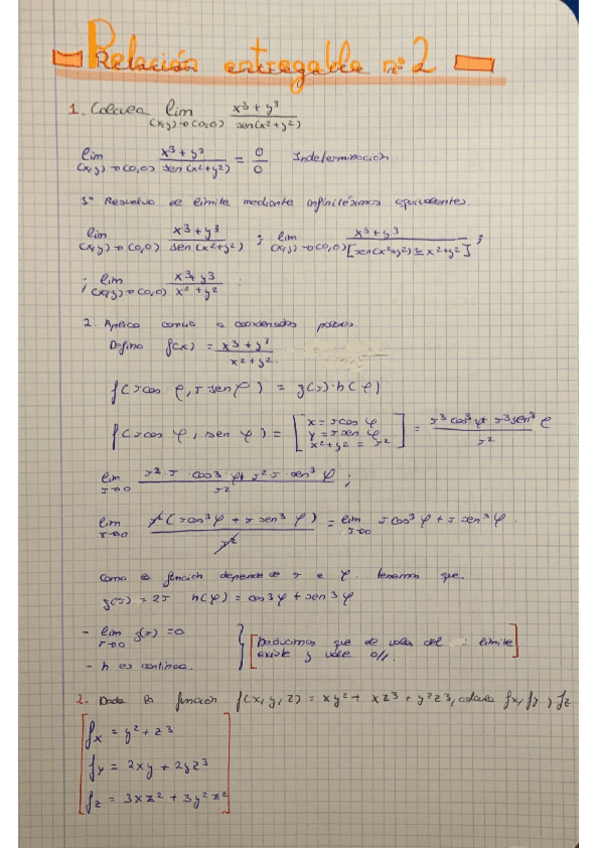 Relación entregable nº 2
1. Calcula lim (x,y)→(0,0) x³ + y³ / sen(x²+y²)
lim (x,y)→(0,0) x³ + y³ / sen(x²+y²) = 0/0 Indeterminación.
1º Resuelvo el límite mediante infinitésimos equivalentes.
lim (x,y)→(0,0) x³ + y³ / sen(x²+y²) ; lim (x,y)→(0,0) x³ + y³ / [sen(x²+y²) ≅ x²+y²] ;
; lim (x,y)→(0,0) x³ + y³ / x² + y² ;
2. Aplico cambio a coordenadas polares
Defino f(x) = x³ + y³ / x² + y².
f(r cos φ, r sen φ) = g(r)·h(φ)
f(r cos φ, sen φ) = [x = r cos φ y = r sen φ x² + y² = r²] = r³ cos³ φ + r³ sen³ φ / r²
lim r→0 r²·r·cos³ φ + r²·r·sen³ φ / r² ;
lim r→0 r²(r cos³ φ + r sen³ φ) / r² = lim r→0 r cos³ φ + r sen³ φ.
Como la función depende de r e φ. tenemos que
g(r) = 2r h(φ) = cos3φ + sen3φ
- lim r→0 g(r) = 0
- h es continua.
} [Deducimos que el valor del límite
existe y vale 0//.]
2. Dada la función f(x,y,z) = xy² + xz³ + y²z³, calcula fx, fy y fz
fx = y² + z³
fy = 2xy + 2yz³
fz = 3xz² + 3y²z²